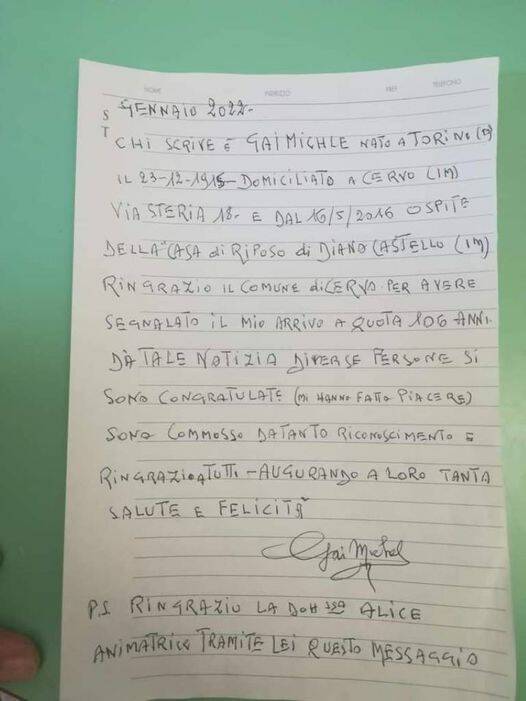 NOME INDIRIZZO TELEFONO
S
T
GENNAIO 2022-
CHI SCRIVE È GAI MICHLE NATO A TORINO
IL 23-12-1915- DOMICILIATO A CERVO (IM)
VIA STERIA 18- E DAL 16/5/2016 OSPITE
DELLA "CASA di RIPOSO di DIANO CASTELLO (IM)
RINGRAZIO IL COMUNE di CERVO PER AVERE
SEGNALATO IL MIO ARRIVO A QUOTA 106 ANNI.
DA TALE NOTIZIA DIVERSE PERSONE SI
SONO CONGRATULATE (MI HANNO FATTO PIACERE)
SONO COMMOSSO DA TANTO RICONOSCIMENTO E
RINGRAZIO A TUTTI - AUGURANDO A LORO TANTA
SALUTE E FELICITÀ
Gai Michel
P.S RINGRAZIO LA DOTT ssa ALICE
ANIMATRICE TRAMITE LEI QUESTO MESSAGGIO